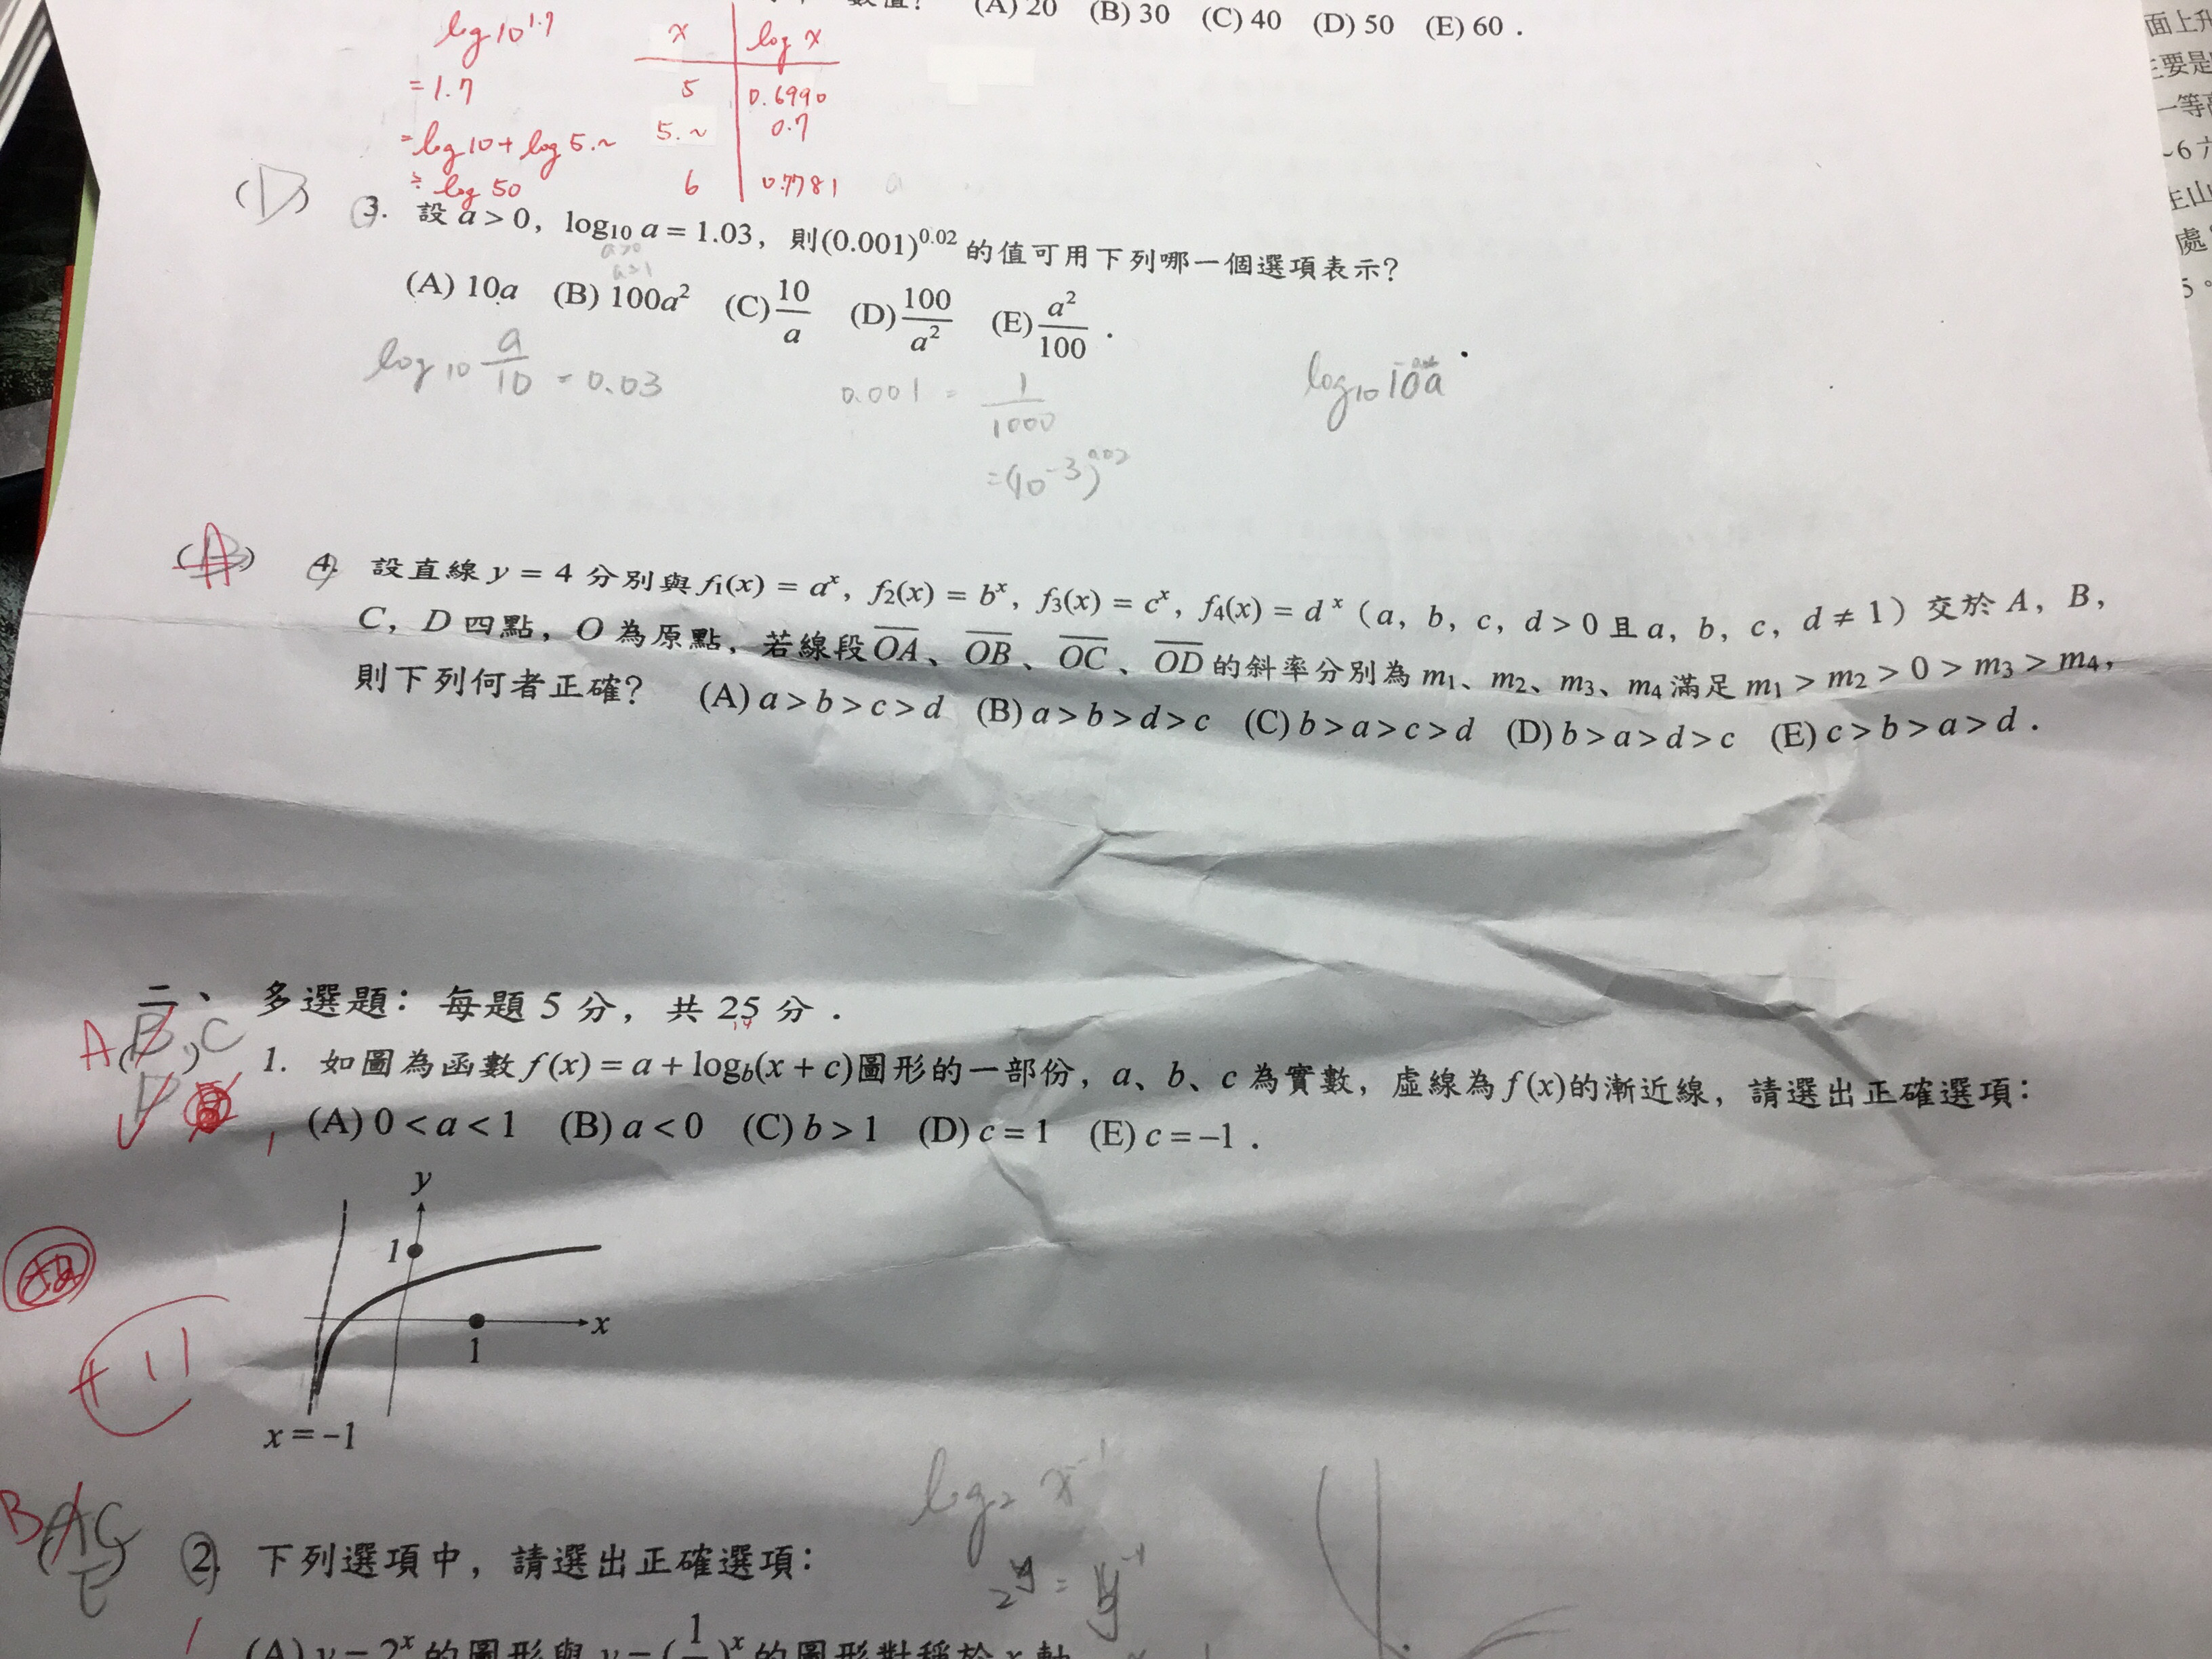 (A) 20 (B) 30 (C) 40 (D) 50 (E) 60 .
log 10^1.7
= 1.7
= log 10 + log 5.~
≒ log 50
x log x
5 0.6990
5.~ 0.7
6 0.7781
(D) 3. 設 a > 0, log₁₀ a = 1.03, 則(0.001)^0.02 的值可用下列哪一個選項表示?
a>0
(A) 10a (B) 100a² (C) 10/a (D) 100/a² (E) a²/100 .
log₁₀ a/10 = 0.03
0.001 = 1/1000
= (10⁻³)^0.02
log₁₀ 10a
(A) 4. 設直線 y = 4 分別與 f₁(x) = aˣ, f₂(x) = bˣ, f₃(x) = cˣ, f₄(x) = dˣ (a, b, c, d > 0 且 a, b, c, d ≠ 1) 交於 A, B,
C, D 四點, O 為原點, 若線段 OA、OB、OC、OD 的斜率分別為 m₁、m₂、m₃、m₄ 滿足 m₁ > m₂ > 0 > m₃ > m₄,
則下列何者正確? (A) a > b > c > d (B) a > b > d > c (C) b > a > c > d (D) b > a > d > c (E) c > b > a > d .
二、 多選題: 每題 5 分, 共 25 分 .
A (B, C)
D
1. 如圖為函數 f(x) = a + log_b(x + c)圖形的一部份, a、b、c 為實數, 虛線為 f(x)的漸近線, 請選出正確選項:
(A) 0 < a < 1 (B) a < 0 (C) b > 1 (D) c = 1 (E) c = –1 .
y
1
x
1
x = –1
+11
log₂ x⁻¹
B (AC
E)
2. 下列選項中, 請選出正確選項:
(A) y = 2ˣ 的圖形與
的圖形對稱於 x 軸
面上升
主要是
一等
~6 六
主山
處
5。